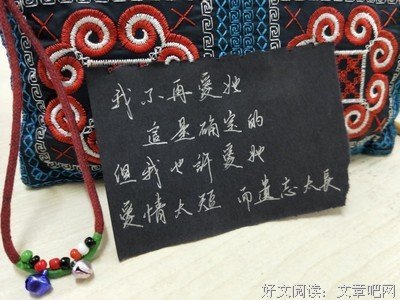 我不再爱她
這是确定的
但我也許爱她
爱情太短 而遺忘太長
好文阅读：文章吧网